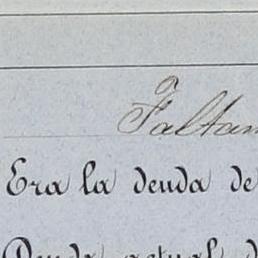 Faltan
Era la deuda de
Deuda actual d